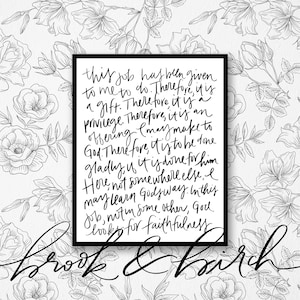 this job has been given
to me to do. Therefore, it is
a gift. Therefore, it is a
privilege. Therefore, it is an
offering I may make to
God. Therefore, it is to be done
gladly, if it is done for him.
Here, not somewhere else, I
may learn God's way. In this
job, not in some other, God
looks for faithfulness.
brook & birch